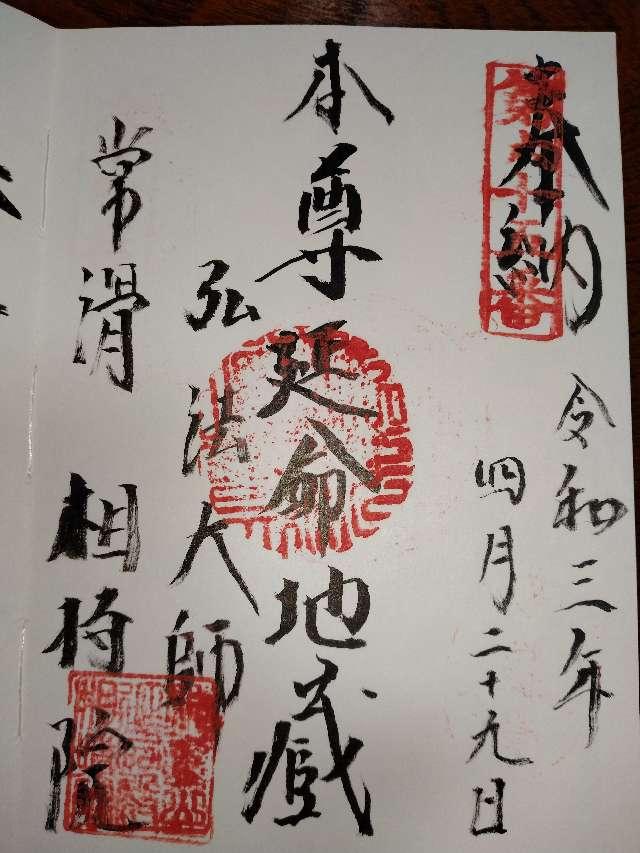 奉納
第六十五番
令和三年
四月二十九日
本尊延命地蔵
弘法大師
常滑 相持院